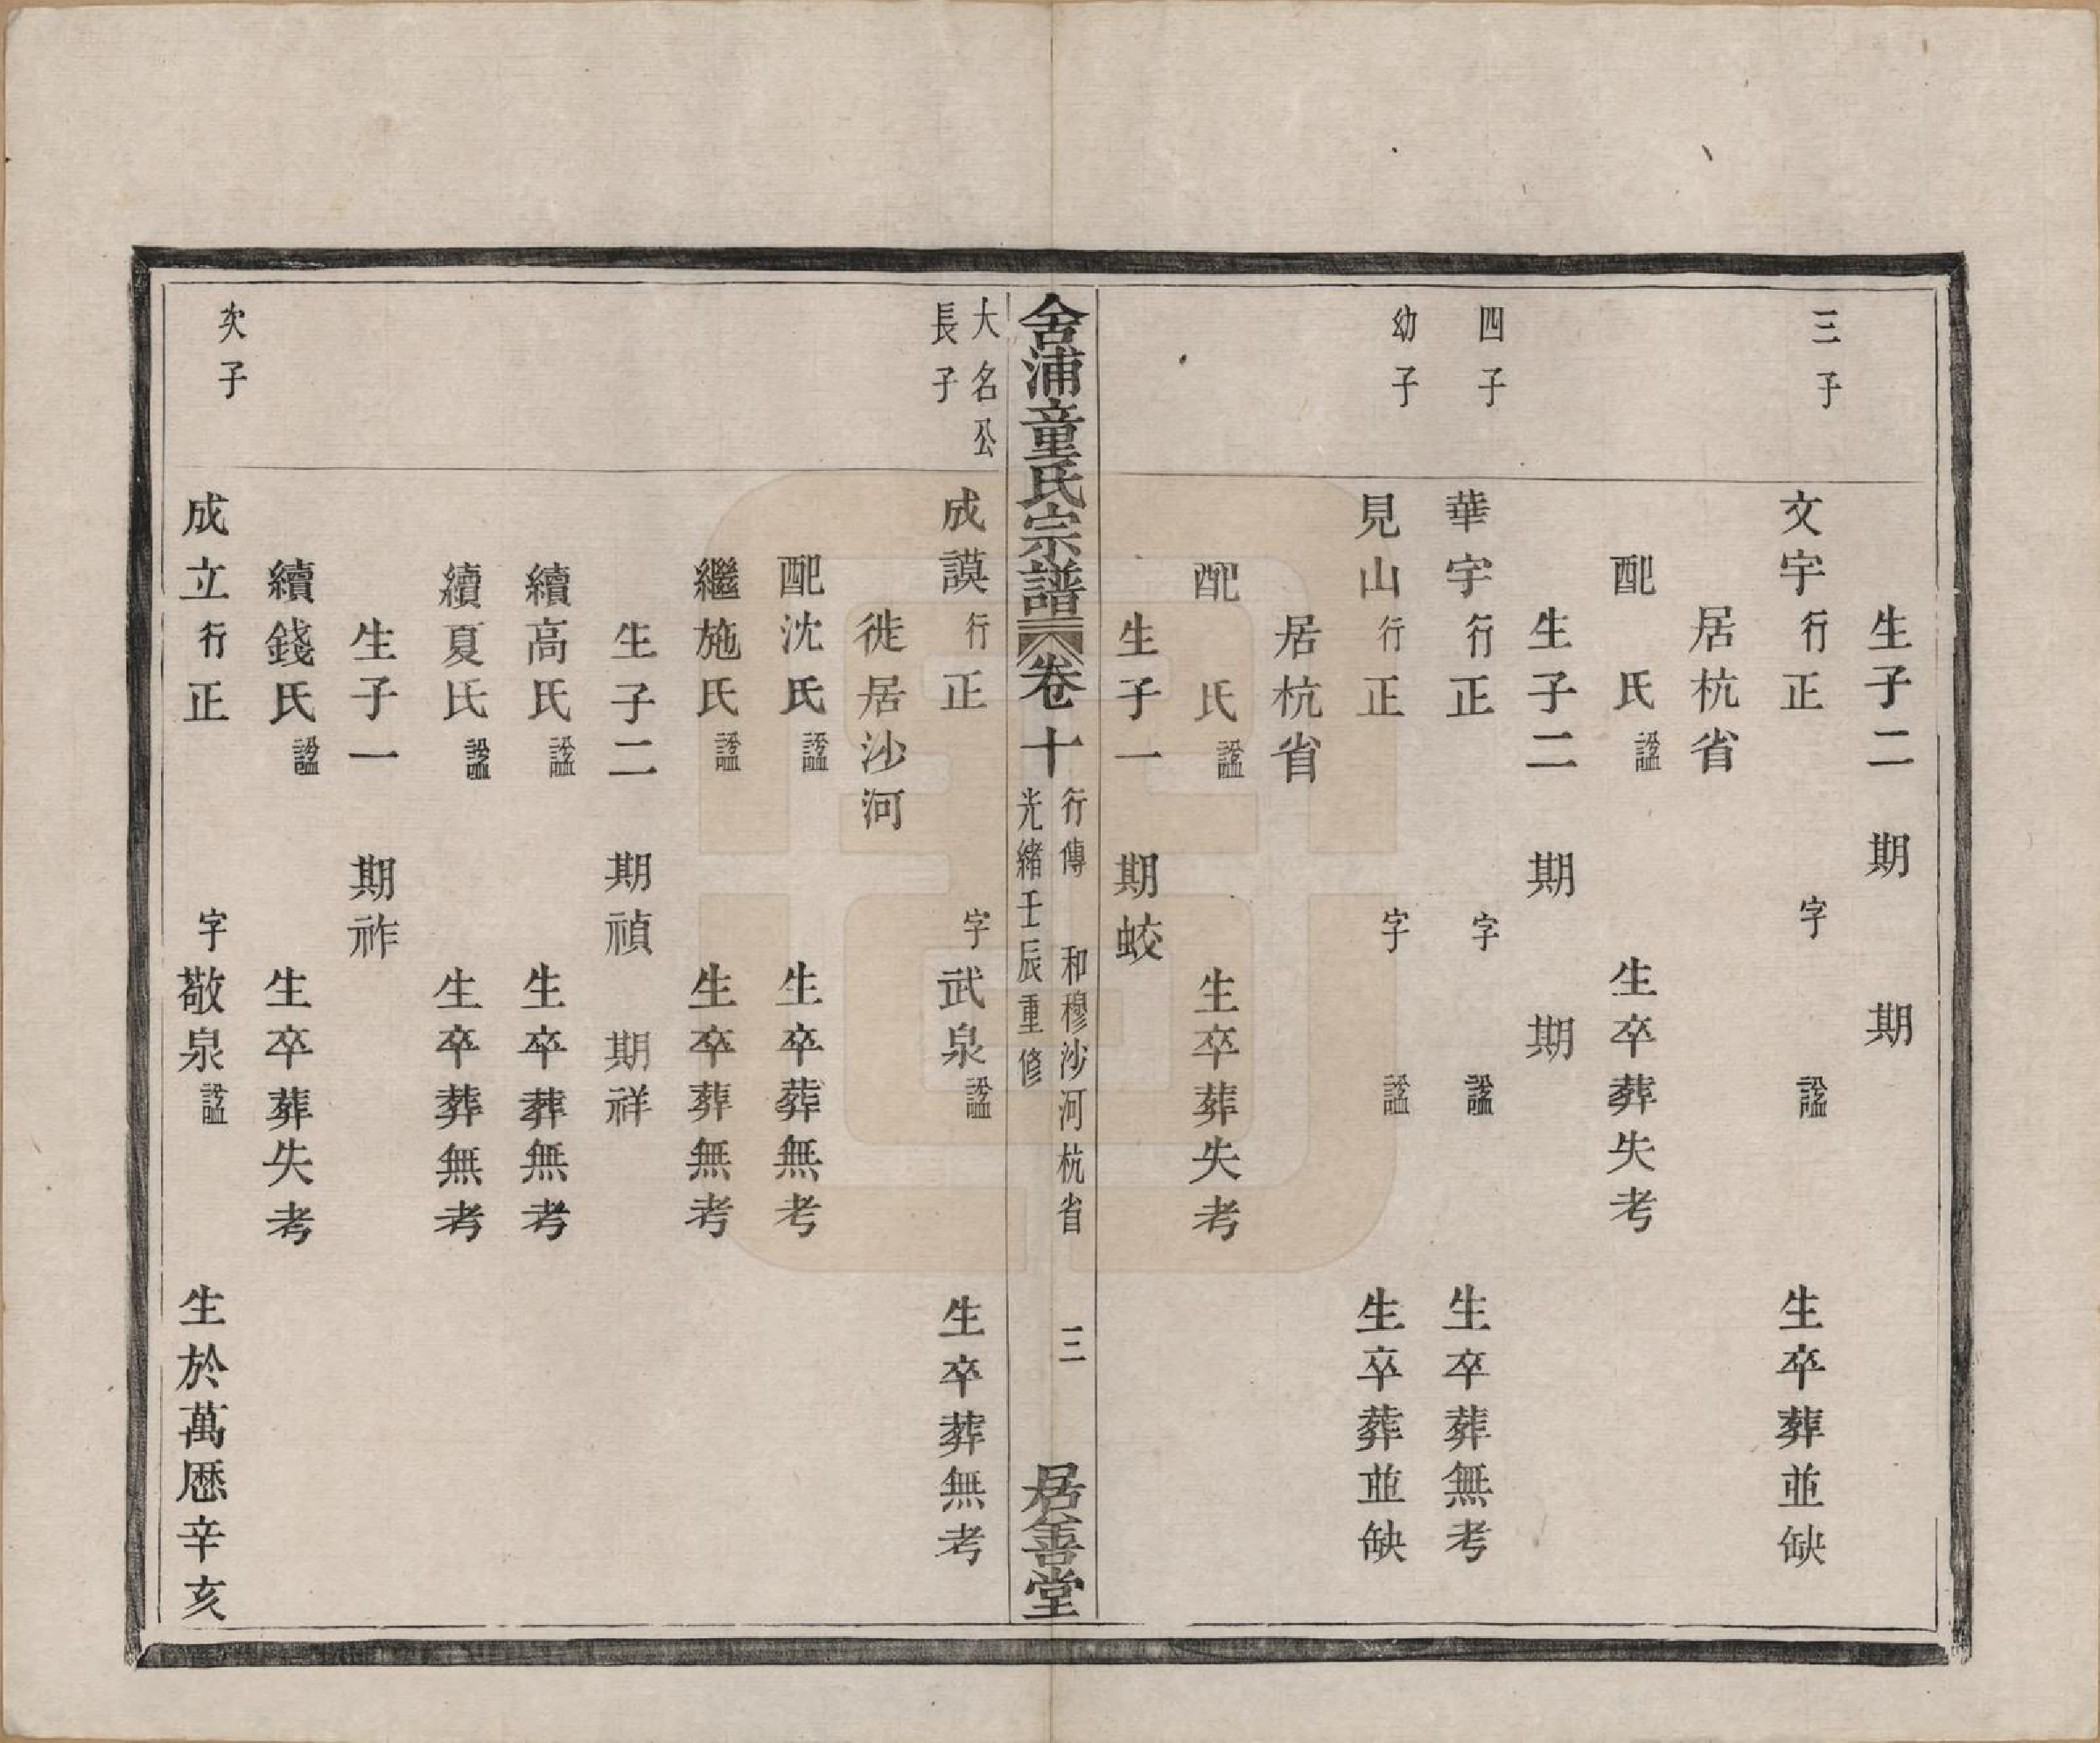 生子二 期 期
三子 文宇行正 字 諡 生卒葬並缺
居杭省
配 氏諡 生卒葬失考
生子二 期 期
四子 華宇行正 字 諡 生卒葬無考
幼子 見山行正 字 諡 生卒葬並缺
居杭省
配 氏諡 生卒葬失考
生子一 期蛟
舍浦童氏宗譜 卷十 行傳 和穆沙河杭省 三 居善堂
光緒壬辰重修
大名公
長子 成謨行正 字武泉諡 生卒葬無考
徙居沙河
配沈氏諡 生卒葬無考
繼施氏諡 生卒葬無考
生子二 期禎 期祥
續高氏諡 生卒葬無考
續夏氏諡 生卒葬無考
生子一 期祚
續錢氏諡 生卒葬失考
次子 成立行正 字敬泉諡 生於萬厯辛亥